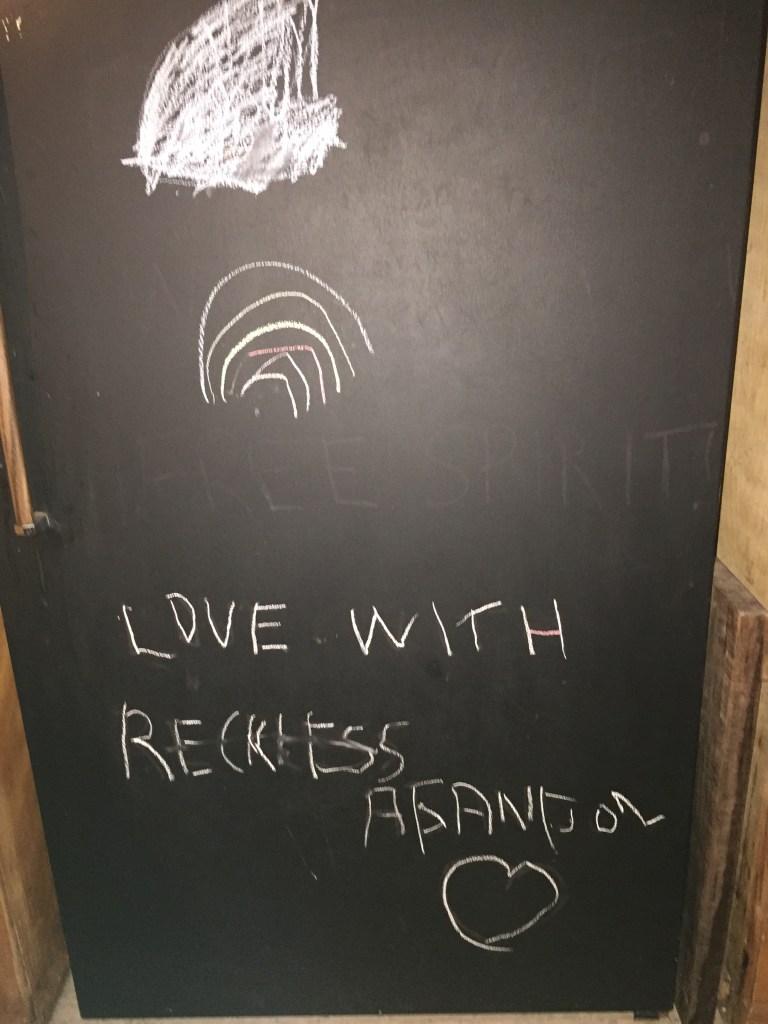 FREE SPIRIT!
LOVE WITH
RECKLESS
ABANDON